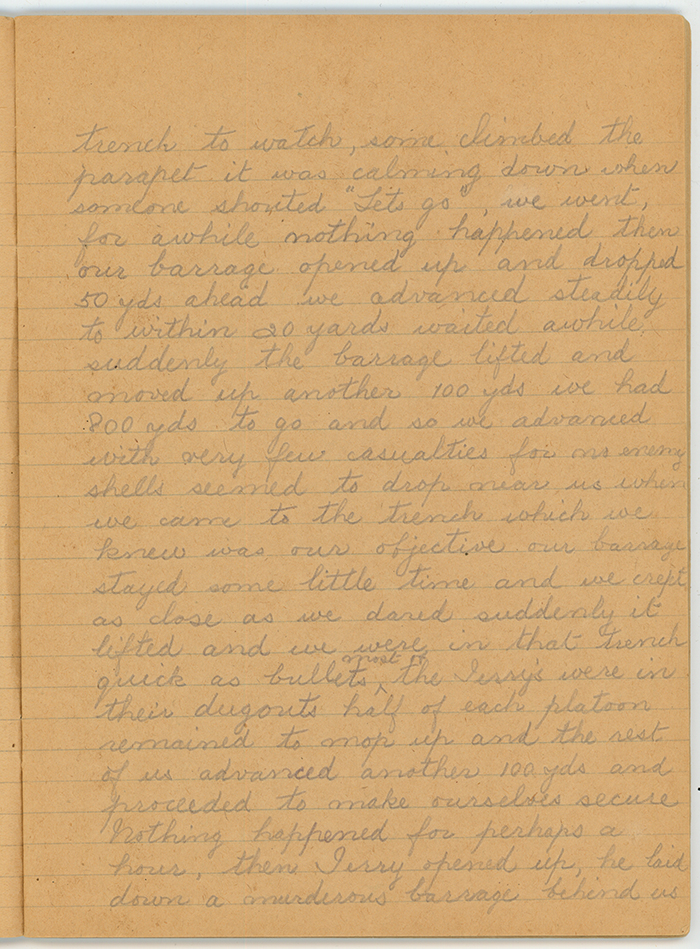 trench to watch, some climbed the
parapet it was calming down when
someone shouted "Lets go", we went,
for awhile nothing happened then
our barrage opened up and dropped
50 yds ahead we advanced steadily
to within 20 yards waited awhile,
suddenly the barrage lifted and
moved up another 100 yds we had
800 yds to go and so we advanced
with very few casualties for no enemy
shells seemed to drop near us when
we came to the trench which we
knew was our objective our barrage
stayed some little time and we crept
as close as we dared suddenly it
lifted and we were in that trench
quick as bullets, most of the Jerry's were in
their dugouts half of each platoon
remained to mop up and the rest
of us advanced another 100 yds and
proceeded to make ourselves secure
Nothing happened for perhaps a
hour, then Jerry opened up, he laid
down a murderous barrage behind us